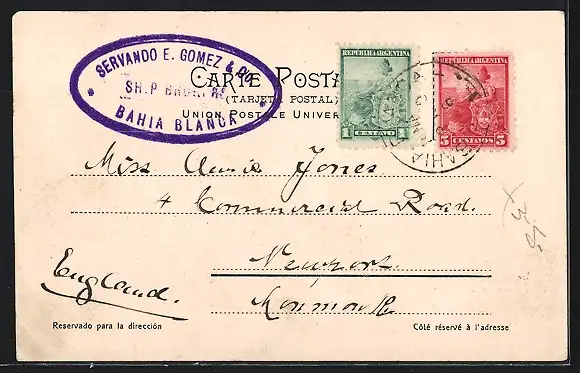 SERVANDO E. GOMEZ & Co
BAHIA BLANCA
CARTE POSTA
(TARJETA POSTAL)
UNION POSTALE UNIVER
REPUBLICA ARGENTINA
1 CENTAVO
REPUBLICA ARGENTINA
5 CENTAVOS 5
BAHIA
Miss Annie Jones
4 Commercial Road.
Newport
Monmouth
England.
Reservado para la dirección
Côté réservé à l'adresse